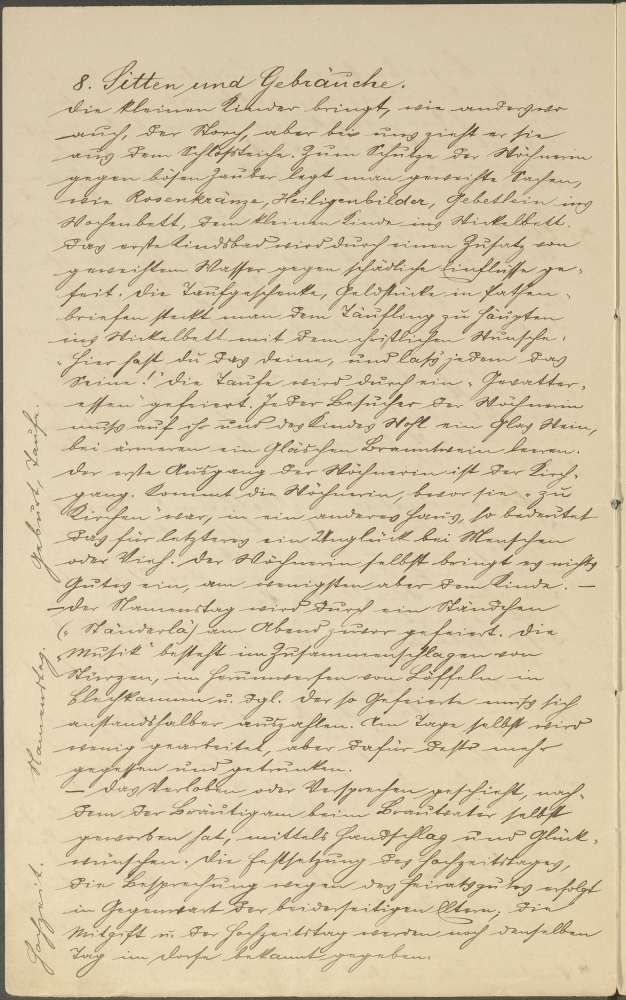 8. Sitten und Gebräuche.
Die kleinen Kinder bringt, wie anderswo
auch, der Storch, aber bei uns zieht er sie
aus dem Schloßteiche. Zum Schutze der Wöchnerin
gegen bösen Zauber legt man geweihte Sachen,
wie Rosenkränze, Heiligenbilder, Gebetlein ins
Wochenbett, dem kleinen Kinde ins Wickelbett.
Das erste Kindsbad wird durch einen Zusatz von
geweihtem Wasser gegen schädliche Einflüsse ge-
feit. Die Taufgeschenke, Geldstücke in Pathen-
briefen steckt man dem Täufling zu Häupten
ins Wickelbett mit dem christlichen Wunsche:
"Hier hast du das deine, und lass jedem das
Seine!" Die Taufe wird durch ein "Gevatter-
essen" gefeiert. Jeder Besucher der Wöchnerin
muß auf ihr und des Kindes Wohl ein Glas Wein,
bei ärmeren ein Gläschen Branntwein leeren.
Der erste Ausgang der Wöchnerin ist der Kirch-
gang. Kommt die Wöchnerin, bevor sie "zu
Kirchen" war, in ein anderes Haus, so bedeutet
das für letzteres ein Unglück bei Menschen
oder Vieh. Der Wöchnerin selbst bringt es nichts
Gutes ein, am wenigsten aber dem Kinde. —
— Der Namenstag wird durch ein Ständchen
("Ständerla") am Abend zuvor gefeiert. Die
"Musik" besteht im Zusammenschlagen von
Stürzen, im Herumwerfen von Löffeln in
Blechkannen u. dgl. Der so Gefeierte muß sich
anstandshalber auszahlen. Am Tage selbst wird
wenig gearbeitet, aber dafür desto mehr
gegessen und getrunken.
— Das Verloben oder Versprechen geschieht, nach-
dem der Bräutigam beim Brautvater selbst
geworben hat, mittels Handschlag und Glück-
wünschen. Die Festsetzung des Hochzeitstages,
die Besprechung wegen des Heiratsgutes erfolgt
in Gegenwart der beiderseitigen Eltern; die
Mitgift u. der Hochzeitstag werden noch denselben
Tag im Dorfe bekannt gegeben.
Geburt, Taufe.
Namenstag.
Hochzeit.